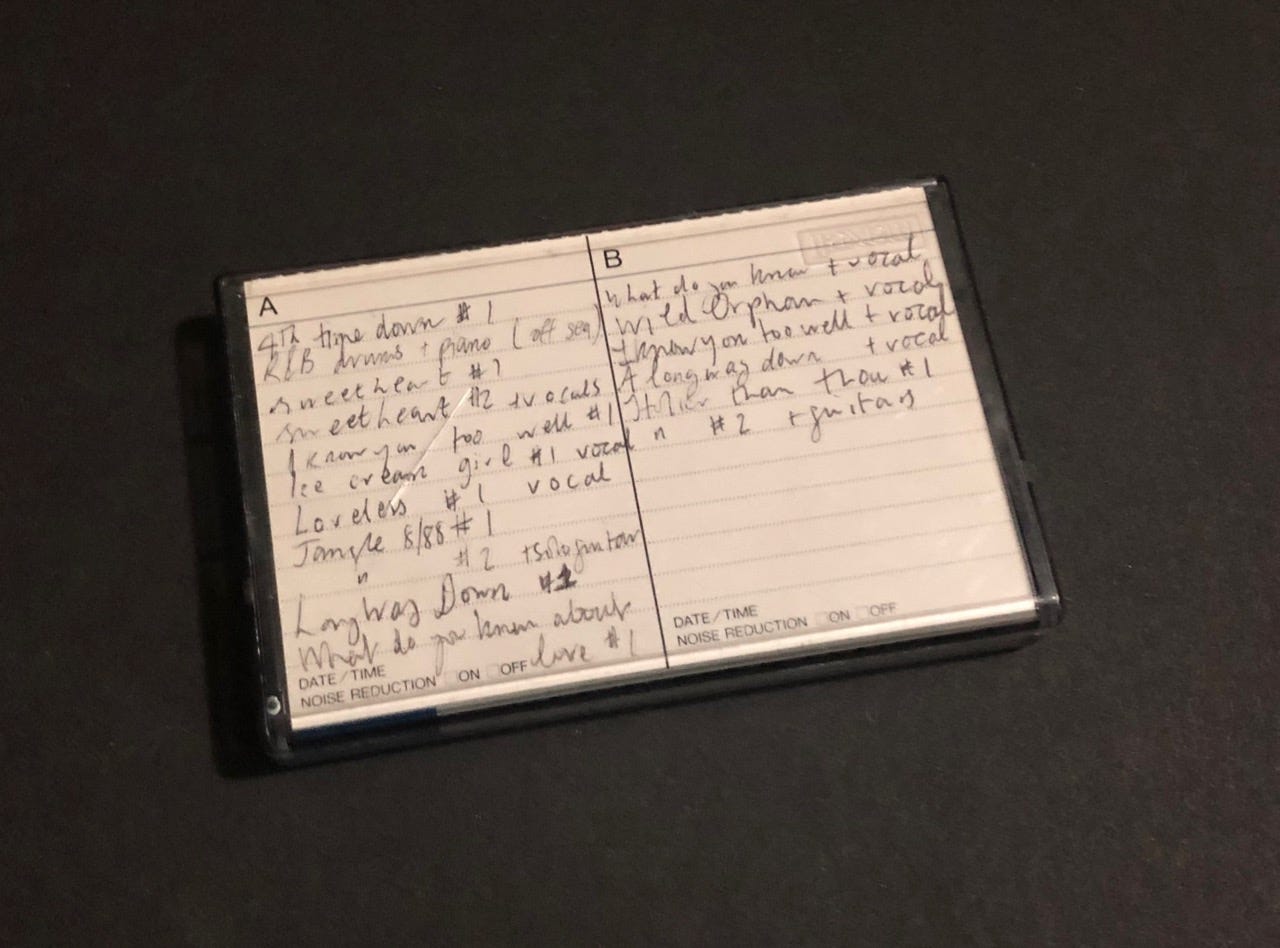 A
4Th time down #1
R&B drums + piano (off seq)
Sweetheart #1
Sweetheart #2 + vocals
I know you too well #1
Ice cream girl #1 vocal
Loveless #1 vocal
Jangle 8/88 #1
" #2 + solo guitar
Long Way Down #1
What do you know about
love #1
DATE/TIME
NOISE REDUCTION ON OFF
B
What do you know + vocal
Wild Orphan + vocal
I know you too well + vocal
A long way down + vocal
Holier than thou #1
" #2 + guitars
DATE/TIME
NOISE REDUCTION ON OFF
maxell